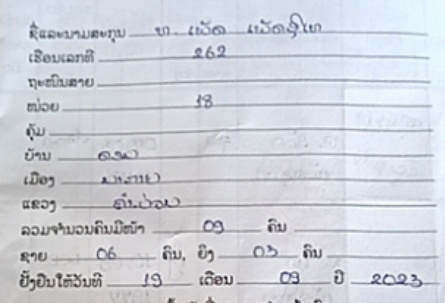 ຊື່ແລະນາມສະກຸນ ທ. ເພັດ
ເຮືອນເລກທີ 262
ຖະໜົນສາຍ
ໜ່ວຍ 18
ຄຸ້ມ
ບ້ານ
ເມືອງ
ແຂວງ
ລວມຈຳນວນຄົນມີໜ້າ 09 ຄົນ
ຊາຍ 06 ຄົນ, ຍິງ 03 ຄົນ
ຢັ້ງຢືນໃຫ້ວັນທີ 19 ເດືອນ 09 ປີ 2023